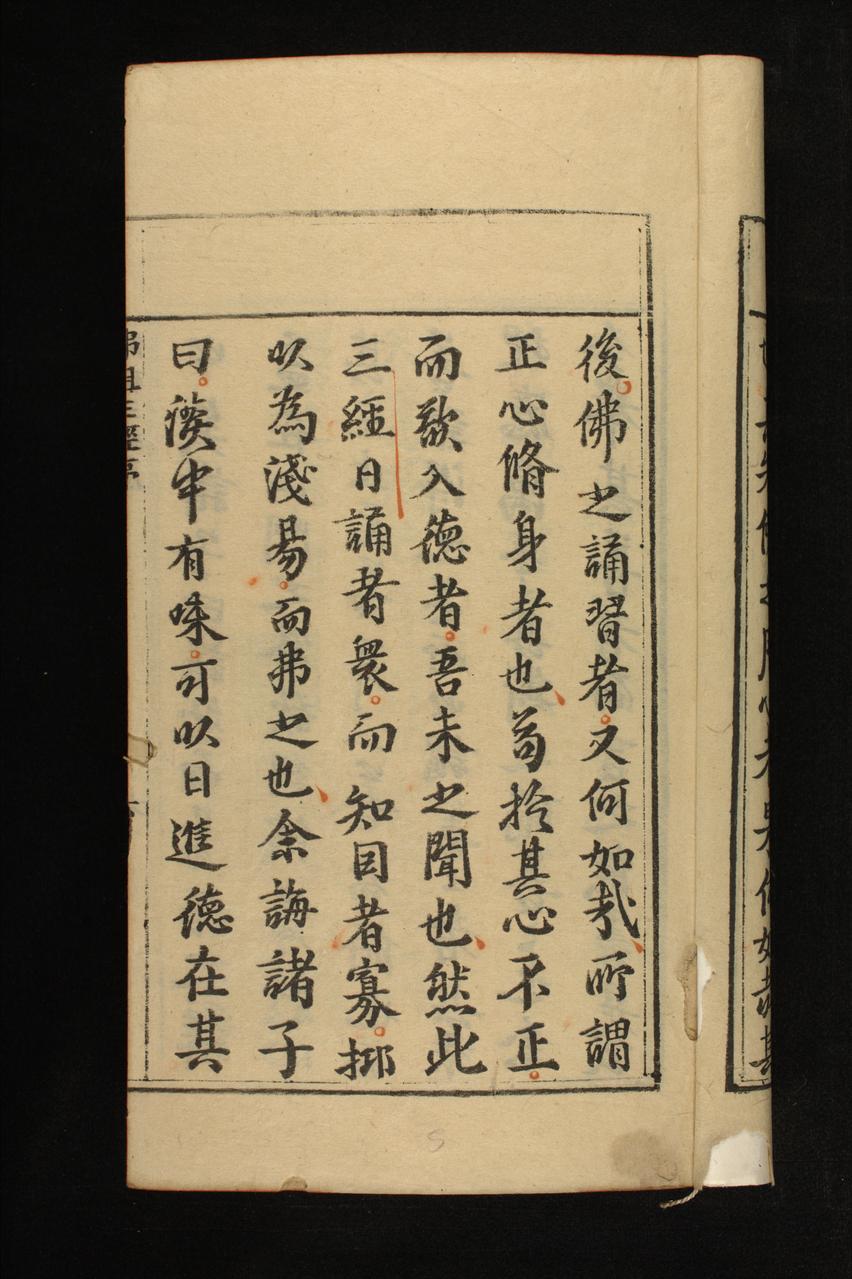 後佛之誦習者又何如哉所謂
正心脩身者也苟於其心不正
而欲入德者吾未之聞也然此
三經日誦者衆而知因者寡抑
以為淺易而弗之也余誨諸子
曰淡中有味可以日進德在其
佛祖三經序